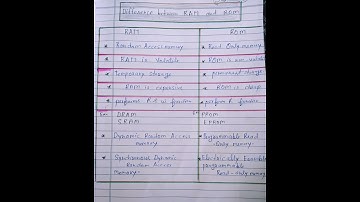 Difference between RAM and ROM
RAM
ROM
* Random Access memory
* Read Only Memory
* RAM is Volatile
* ROM is non volatile
* Temporary storage
* permanent storage
* RAM is expensive
* ROM is cheap
* perform R & W function
* perform R function
DRAM
SRAM
PROM
EPROM
* Dynamic Random Access
memory
* Programmable Read
Only memory
* Synchronous Dynamic
Random Access
Memory
* Electrically
programmable
Read-Only memory